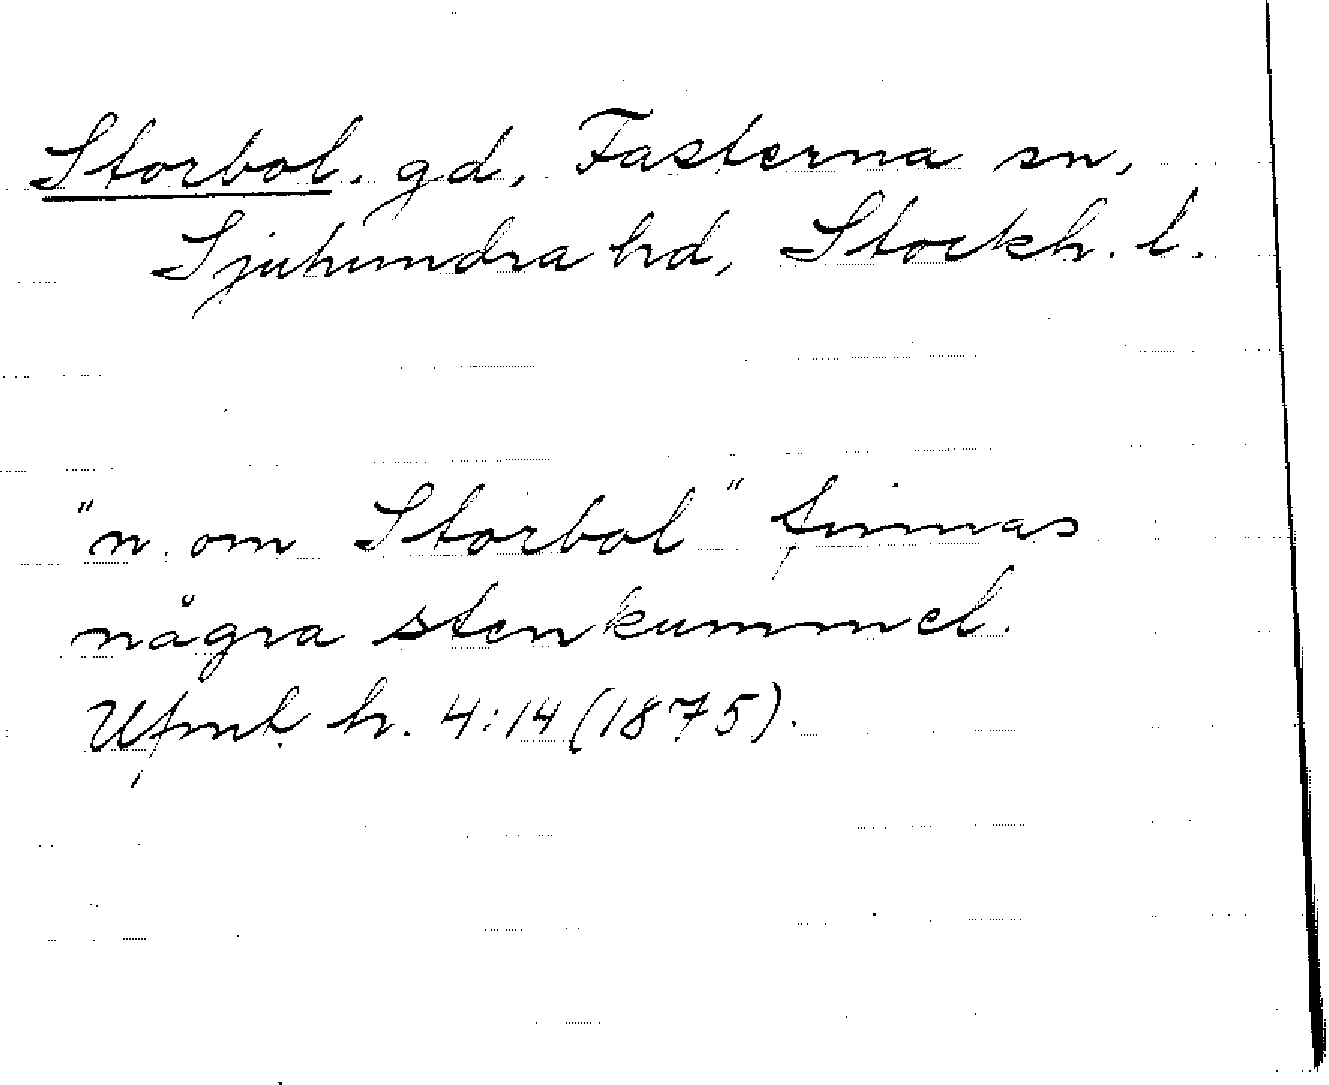 Storbol. gd, Fasterna sn,
Sjuhundra hd, Stockh. l.
"n. om Storbol" finnas
några stenkummel.
Ufmt h. 4:14 (1875).